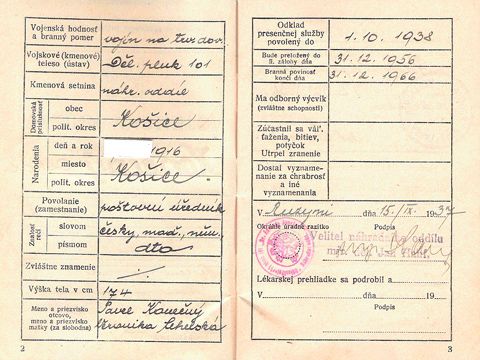 Vojenská hodnosť
a branný pomer
vojín na tvrdov.
Vojskové (kmenové)
teleso (ústav)
Děl. pluk 101
Kmenová setnina
náhr. oddíl
Domovská príslušnosť
obec
polit. okres
Košice
Narodenia
deň a rok
1916
miesto
polit. okres
Košice
Povolanie
(zamestnanie)
poštovní úředník
Znalosť rečí
slovom
česky, maď., něm.
písmom
dto
Zvláštne znamenie
Výška tela v cm
174
Meno a priezvisko
otcovo,
meno a priezvisko
matky (za slobodna)
Pavel Konečný
Veronika
2
Odklad
presenčnej služby
povolený do
1. 10. 1938
Bude preložený do
II. zálohy dňa
31. 12. 1956
Branná povinnosť
končí dňa
31. 12. 1966
Ma odborný výcvik
(zvláštne schopnosti)
Zúčastnil sa váľ.
ťaženia, bitiev,
potyčok
Utrpel zranenie
Dostal vyzname-
nanie za chrabrosť
a iné
vyznamenania
V Ruzyni dňa 15./IX. 1937
Okrúhle úradné razítko
Velitel náhradního oddílu
Podpis
Lékarskej prehliadke sa podrobil a
V dňa 19
Podpis
3